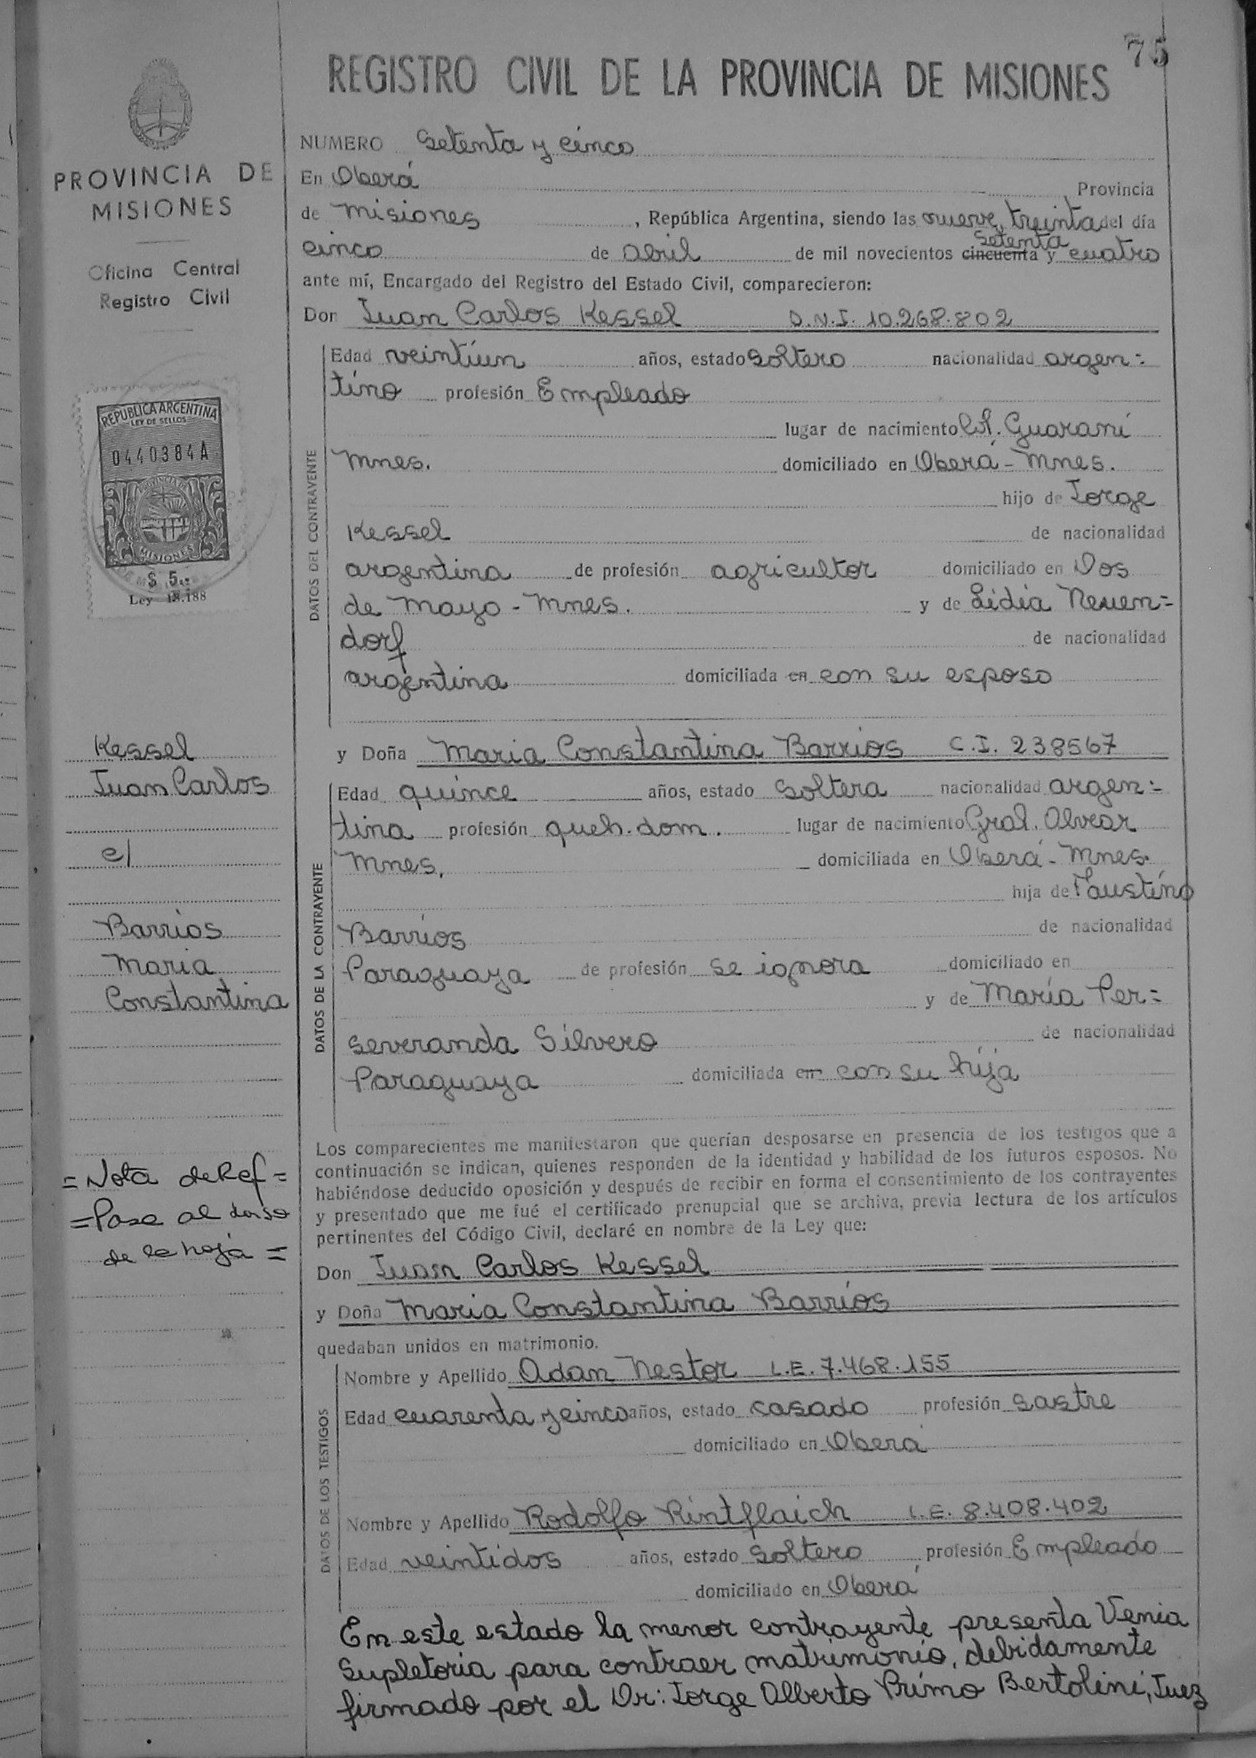 75
REGISTRO CIVIL DE LA PROVINCIA DE MISIONES
PROVINCIA DE
MISIONES
Oficina Central
Registro Civil
REPUBLICA ARGENTINA
LEY DE SELLOS
0440384A
MISIONES
$ 5,-
Ley 18.188
Kessel
Juan Carlos
c/
Barrios
Maria
Constantina
=Nota de Ref=
=Pasa al dorso
de la hoja=
NUMERO Setenta y cinco
En Oberá Provincia
de Misiones, República Argentina, siendo las nueve, treinta del día
cinco de Abril de mil novecientos cincuenta setenta y cuatro
ante mí, Encargado del Registro del Estado Civil, comparecieron:
Don Juan Carlos Kessel D.N.I. 10.268.802
DATOS DEL CONTRAYENTE
Edad veintiun años, estado Soltero nacionalidad argen=
tino profesión Empleado
lugar de nacimiento Col. Guaraní
Mnes. domiciliado en Oberá - Mnes.
hijo de Jorge
Kessel de nacionalidad
argentina de profesión agricultor domiciliado en Dos
de Mayo - Mnes. y de Lidia Neuen=
dorf de nacionalidad
argentina domiciliada en con su esposo
y Doña Maria Constantina Barrios C.I. 238567
DATOS DE LA CONTRAYENTE
Edad quince años, estado Soltera nacionalidad argen=
tina profesión queh. dom. lugar de nacimiento Gral. Alvear
Mnes. domiciliada en Oberá - Mnes.
hija de Faustino
Barrios de nacionalidad
Paraguaya de profesión se ignora domiciliado en
y de María Per=
severanda Silvero de nacionalidad
Paraguaya domiciliada en con su hija
Los comparecientes me manifestaron que querían desposarse en presencia de los testigos que a
continuación se indican, quienes responden de la identidad y habilidad de los futuros esposos. No
habiéndose deducido oposición y después de recibir en forma el consentimiento de los contrayentes
y presentado que me fué el certificado prenupcial que se archiva, previa lectura de los artículos
pertinentes del Código Civil, declaré en nombre de la Ley que:
Don Juan Carlos Kessel
y Doña Maria Constantina Barrios
quedaban unidos en matrimonio.
DATOS DE LOS TESTIGOS
Nombre y Apellido Adan Nestor L.E. 7.468.155
Edad cuarenta y cinco años, estado casado profesión sastre
domiciliado en Oberá
Nombre y Apellido Rodolfo Rintflaich L.E. 8.408.402
Edad veintidos años, estado Soltero profesión Empleado
domiciliado en Oberá
En este estado la menor contrayente presenta Venia
Supletoria para contraer matrimonio, debidamente
firmado por el Dr: Jorge Alberto Primo Bertolini, Juez